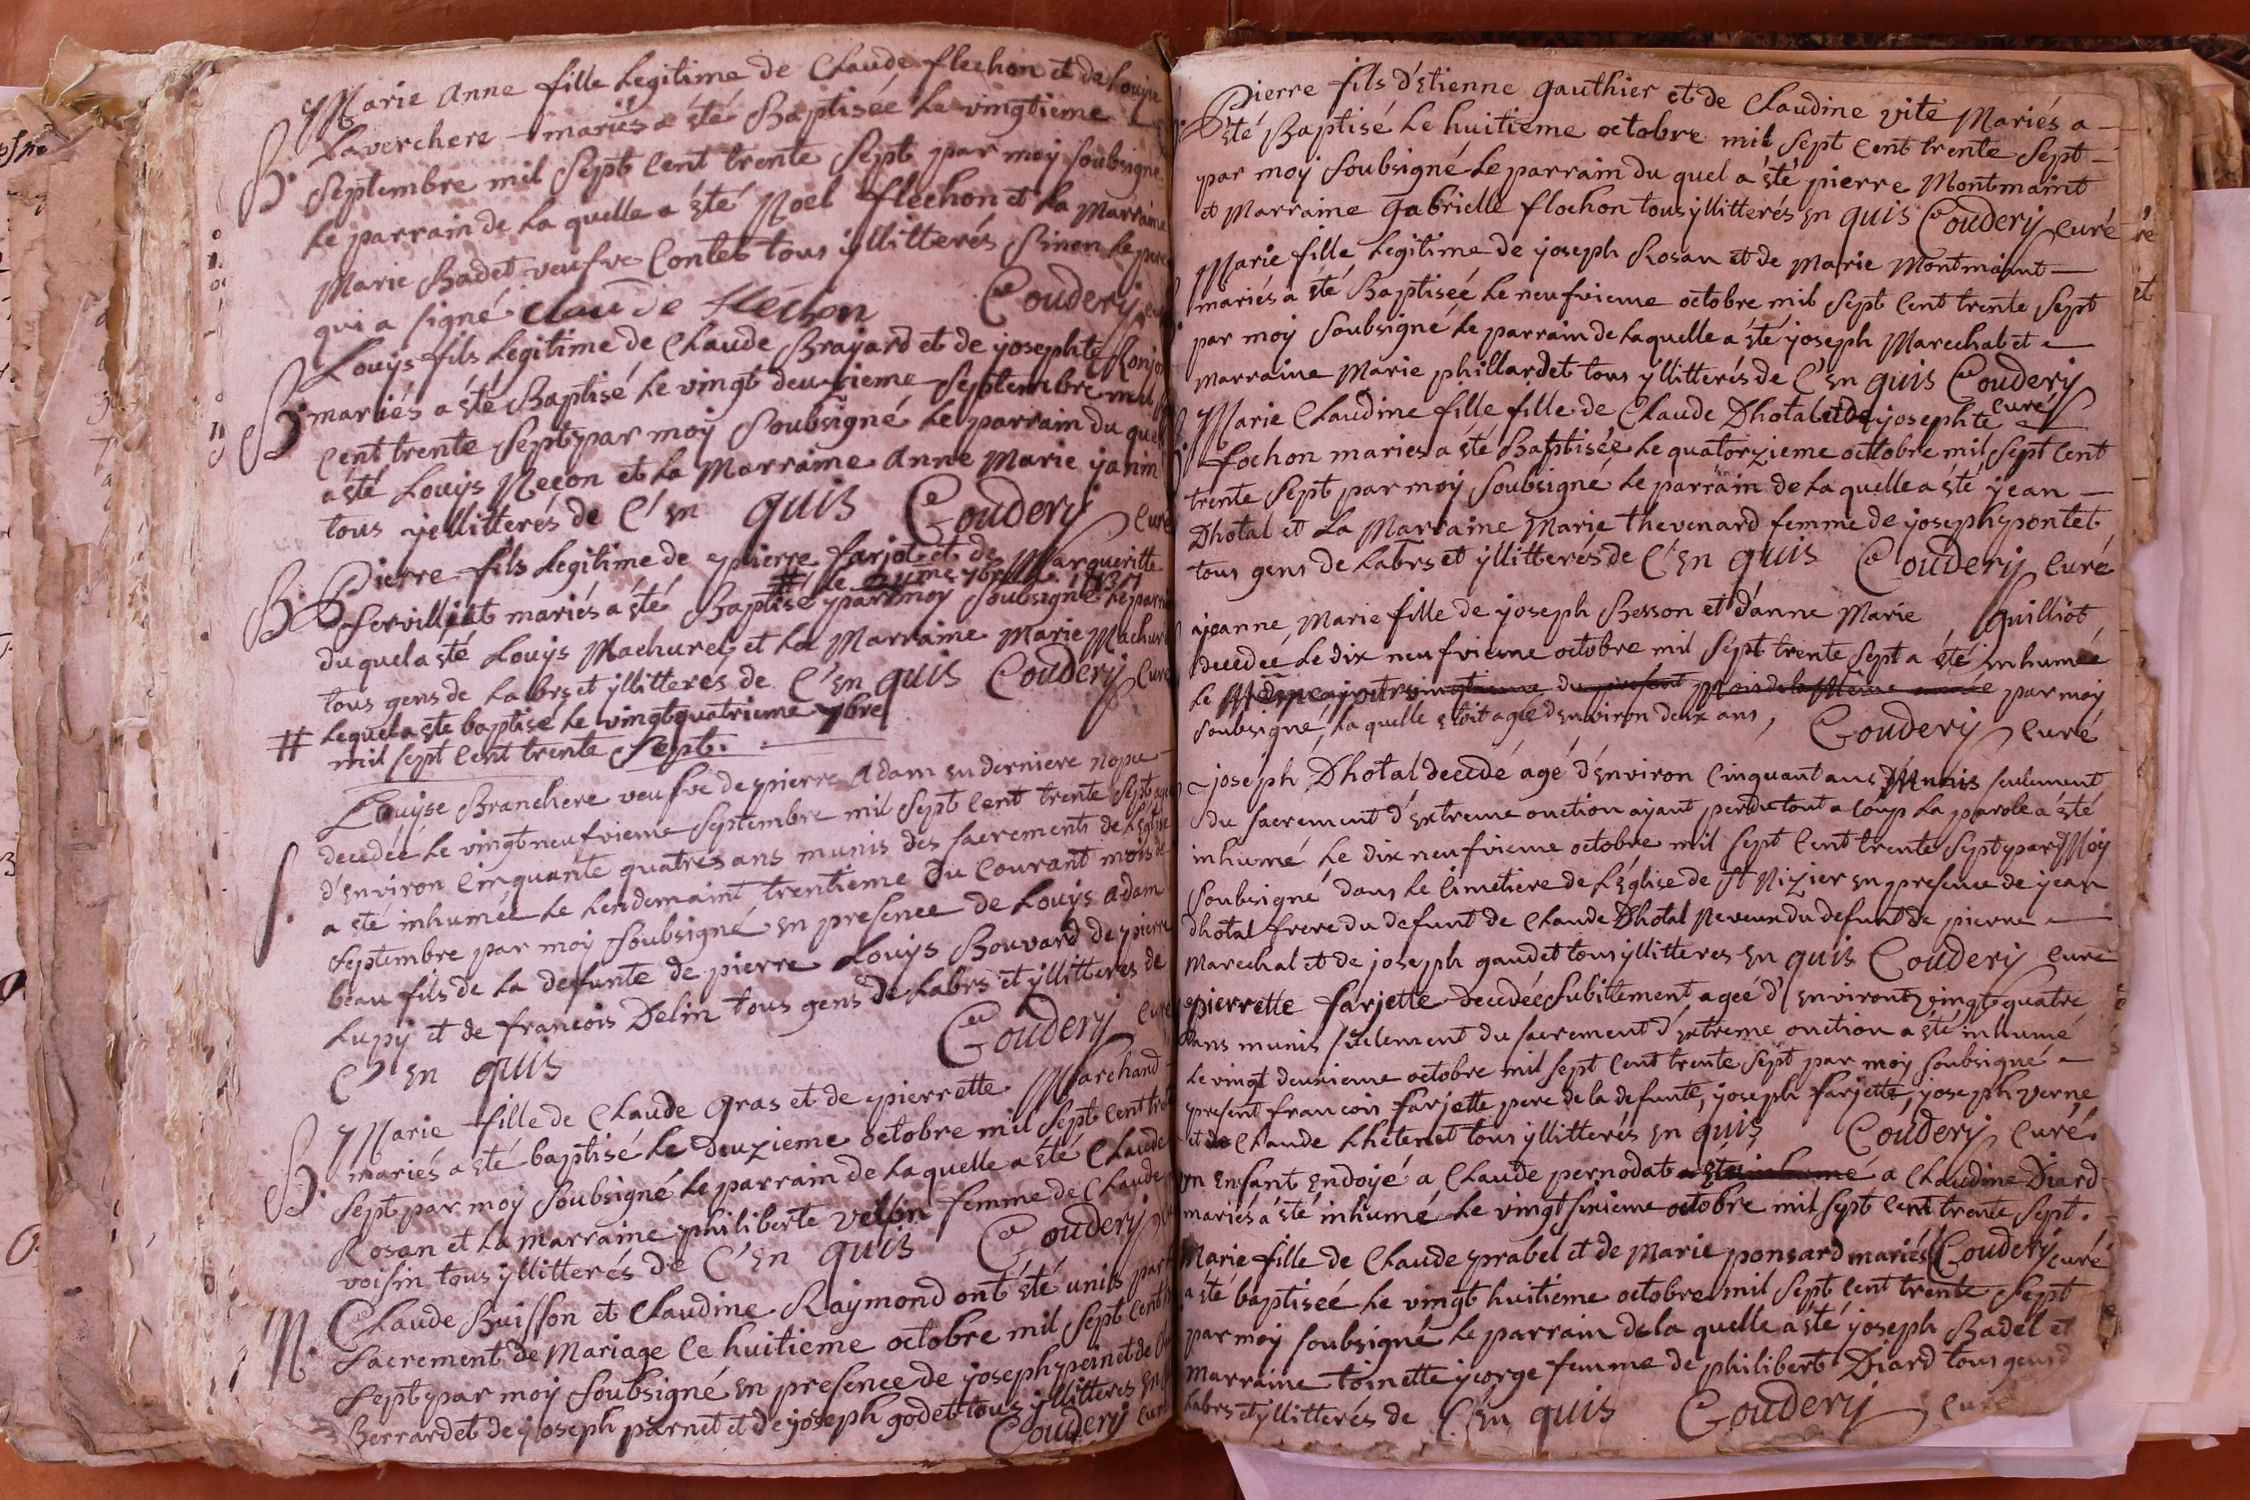 Marie Anne fille Legitime de Claude flechon et de Louyse
Laverchere mariés a été Baptisée Le vingtieme
B. Septembre mil Sept Cent trente Sept par moy soubsigné
Le parrain de La quelle a été Noel flechon et La Marraine
Marie Badet veufve Contet tous yllitterés Sinon Le pere
qui a signé Claude flechon Coudery
Louys fils Legitime de Claude Brayard et de yosephte
B. mariés a été Baptisé Le vingt deuxieme Septembre mil
Cent trente Sept par moy Soubsigné Le parrain du quel
a été Louys Neçon et La Marraine Anne Marie yanin
tous yllitterés de C' En quis Coudery Curé
B. Pierre fils Legitime de pierre farjot et de Margueritte
# Le 7bre 1737
Servillat mariés a été Baptisé par moy Soubsigné Le parrain
du quel a été Louys Machurel et La Marraine Marie
tous gens de Labrs et yllitterés de C'En quis Coudery Curé
# Lequel a été baptisé Le vingtquatrieme 7bre
mil sept Cent trente Sept.
Louyse Branchere veufve de pierre Adam en derniere nopce
decedée Le vingt neufvieme Septembre mil Sept Cent trente Sept
d'Environ Cinquante quatres ans munis des Sacrements de L'Eglise
S. a été inhumée Le Lendemaint trentieme du Courant mois de
Septembre par moy soubsigné en presence de Louys Adam
beau fils de La defunte de pierre Louys Bouvard de pierre
Lupy et de francois Delin tous gens de Labrs et yllitteres de
C' En quis Coudery Curé
Marie fille de Claude Gras et de pierrette Marchand
B. mariés a été baptisé Le deuzieme octobre mil Sept Cent
Sept par moy Soubsigné Le parrain de La quelle a été Claude
Rosan et La marraine philiberte femme de Claude
voisin tous yllitterés de C'En quis Coudery
M. Claude Buisson et Claudine Raymond ont été unis par
Sacrement de Mariage Ce huitieme octobre mil Sept Cent
Sept par moy Soubsigné en presence de yoseph de
Berrardet de yoseph parnet et de yoseph godet tous yllitteres en
Coudery Curé
Pierre fils d'Etienne Gauthier et de Claudine vite Mariés a
été Baptisé Le huitieme octobre mil Sept Cent trente Sept
par moy Soubsigné Le parrain du quel a été pierre Montmaint
et Marraine Gabrielle flochon tous yllitterés En quis Coudery Curé
Marie fille Legitime de yoseph Rosan et de Marie Montmaint
mariés a été Baptiseé Le neufvieme octobre mil Sept Cent trente Sept
par moy Soubsigné Le parrain de Laquelle a été yoseph Marechal et
marraine Marie phillardet tous yllitterés de C'En quis Coudery
curé
Marie Claudine fille fille de Claude Dhotal et de yosephte
fochon mariés a été Baptisée Le quatorzieme octobre mil Sept Cent
trente Sept par moy Soubsigné Le parrain de La quelle a été yean
Dhotal et La Marraine Marie thevenard femme de yoseph pontet
tous gens de Labrs et yllitterés de C'En quis Coudery Curé
yeanne Marie fille de yoseph Besson et d'anne Marie Guilliot
decedée Le dix neufvieme octobre mil Sept trente Sept a été inhumée
Le par moy
Soubsigné, La quelle etoit ageé d'Environ deux ans, Coudery Curé
joseph Dhotal decedé agé d'Environ Cinquant ans Munis seulement
du Sacrement d'Extreme onction ayant perdu tout a Coup La parole a été
inhumé Le dix neufvieme octobre mil Sept Cent trente Sept par Moy
Soubsigné dans Le Cimetiere de L'Eglise de St Nizier en presence de yean
dhotal frere du defunt de Claude Dhotal Neveux du defunt de pierre
Marechal et de joseph gaudet tous yllitteres En quis Coudery Curé
pierrette farjette decedée Subitement ageé d'Environt vingt quatre
ans munis seulement du Sacrement d'Extreme onction a été inhumé
Le vingt deuxieme octobre mil Sept Cent trente Sept par moy soubsigné
present francois farjette pere de la defunte, yoseph farjette, yoseph verne
et de Claude tous yllitterés En quis Coudery Curé.
un Enfant Endoyé a Claude pernodat a été inhumé a Claudine Diard
mariés a été inhumé Le vingt sixieme octobre mil Sept Cent trente Sept.
Marie fille de Claude prabel et de Marie ponsard mariés Coudery Curé
a été baptiseé Le vingt huitieme octobre mil Sept Cent trente Sept
par moy soubsigné Le parrain de la quelle a été yoseph Badel et
Marraine toinette yeorge femme de philibert Diard tous gens d
Labrs et yllitterés de C'En quis Coudery Curé